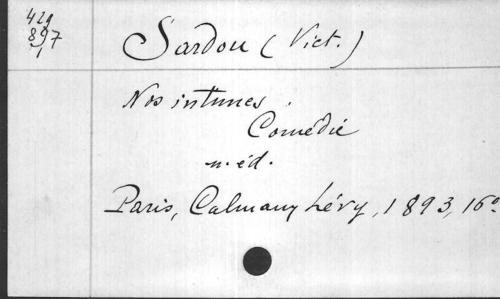 429
897
Sardou (Vict.)
Nos intimes
Comédie
n. éd.
Paris, Calmann Lévy, 1893, 16°